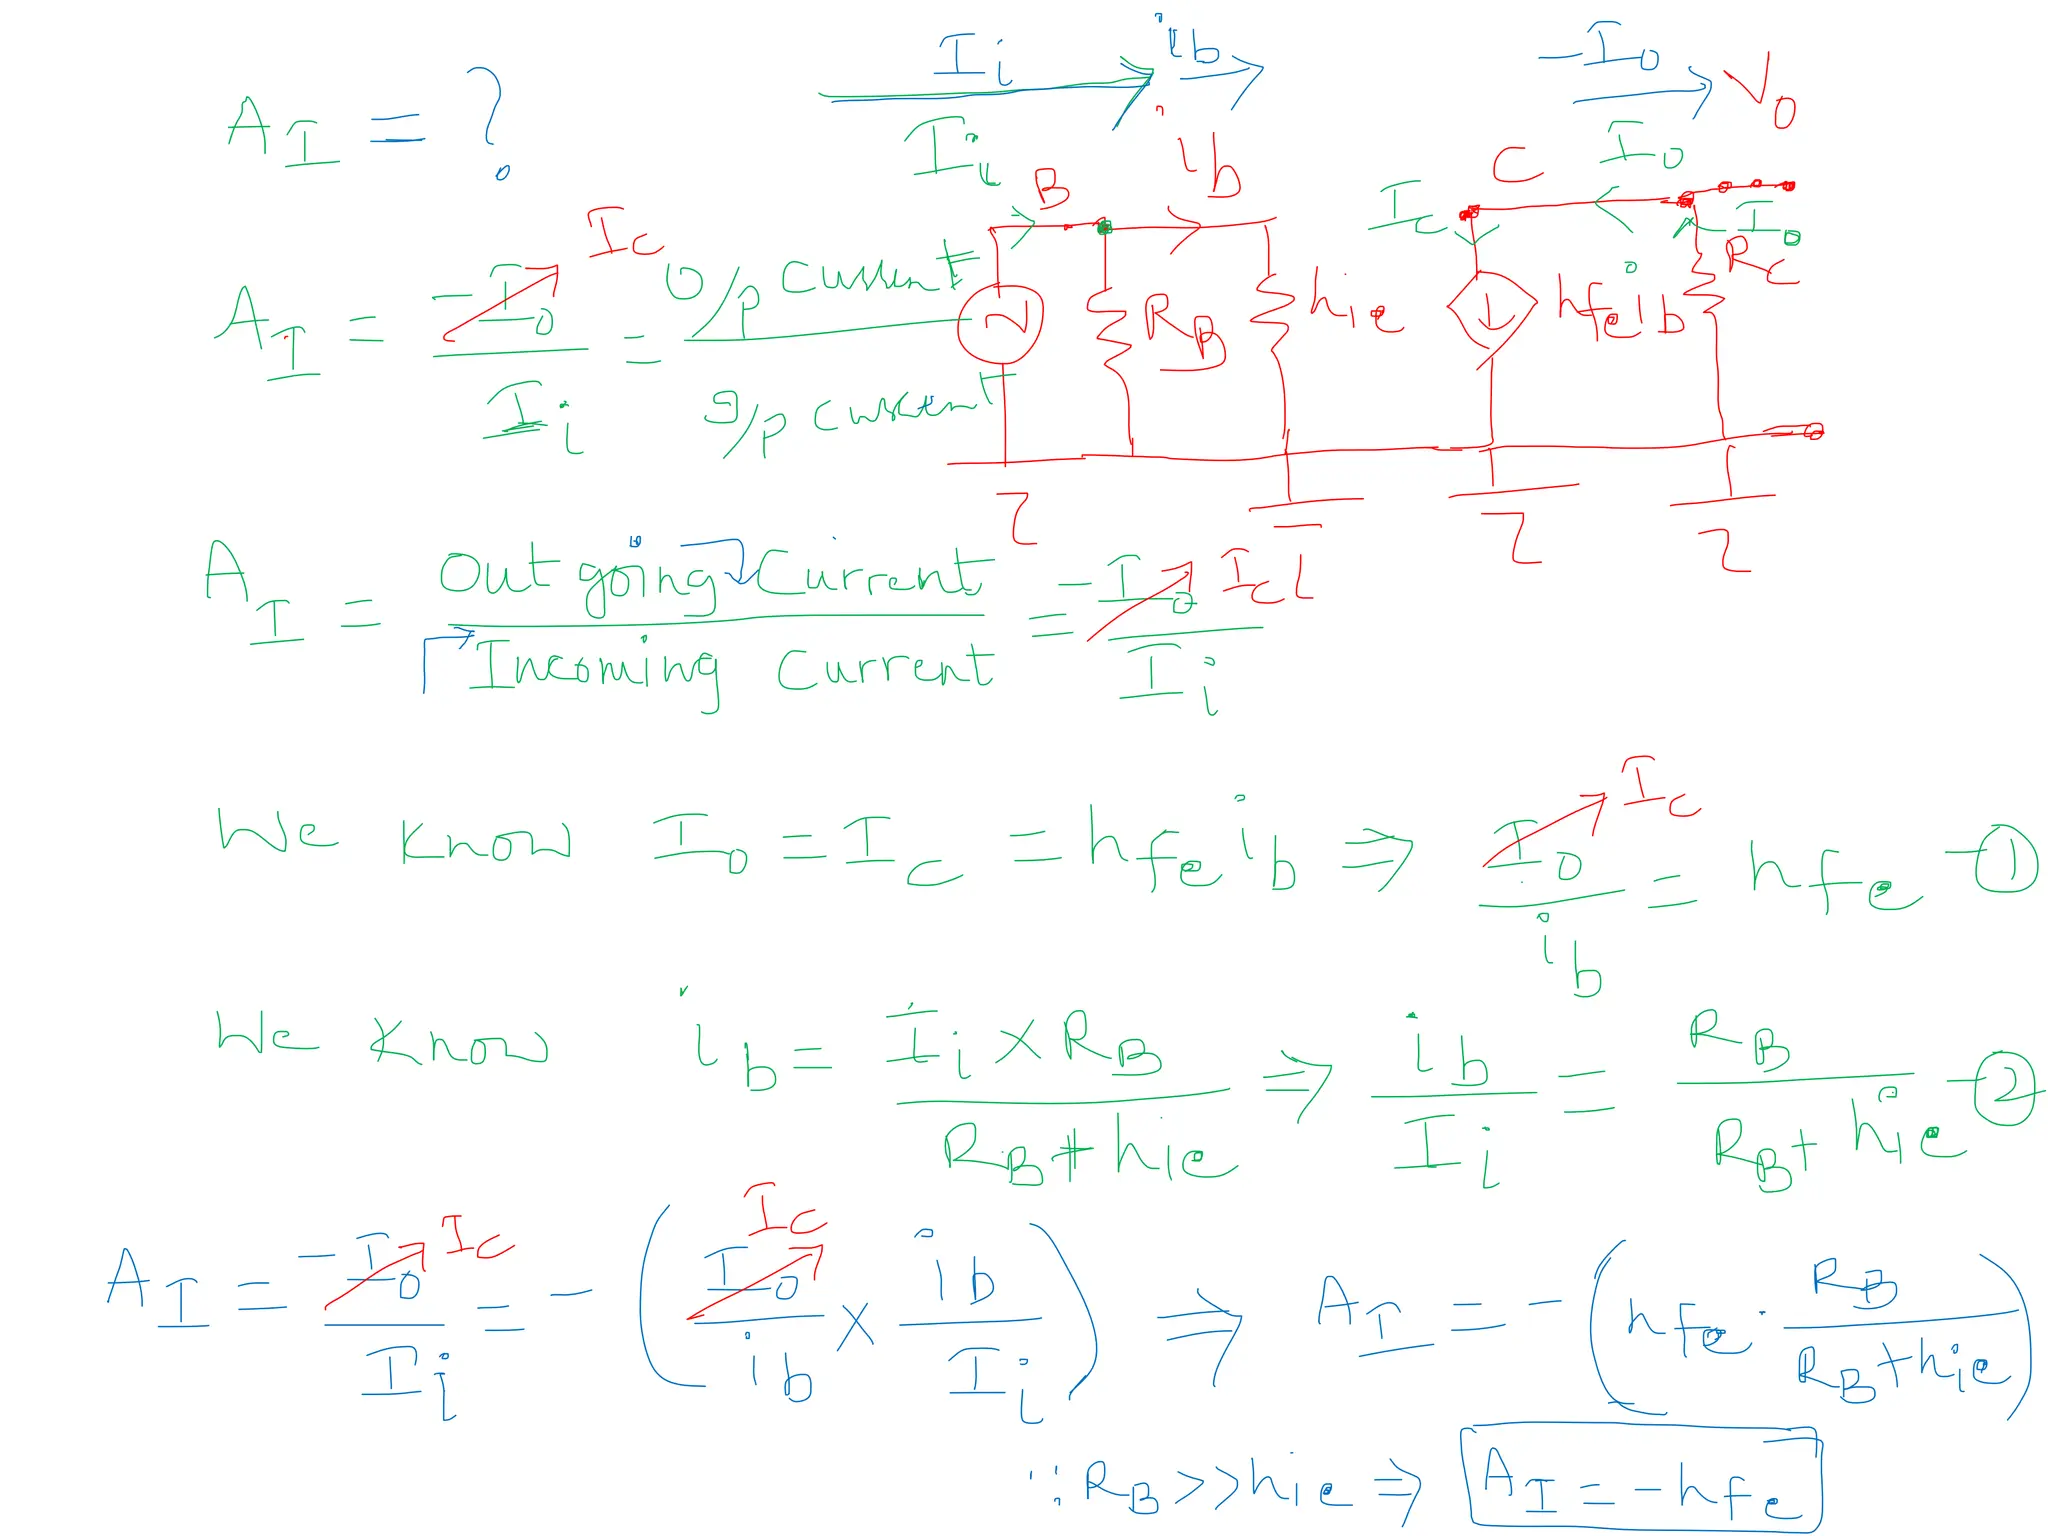 A_I = ?
I_i i_b
-I_o V_o
I_i i_b
I_o
B C I_c I_o
A_I = -I_o / I_i = O/p current / I/p current
I_c
R_B h_ie h_fe i_b R_C
A_I = Outgoing Current / Incoming Current = -I_o / I_i
I_c
We know I_o = I_c = h_fe i_b ⇒ I_o / i_b = h_fe - ①
I_c
We know i_b = I_i × R_B / R_B + h_ie ⇒ i_b / I_i = R_B / R_B + h_ie - ②
A_I = -I_o / I_i = - ( I_o / i_b × i_b / I_i ) ⇒ A_I = - ( h_fe · R_B / R_B + h_ie )
I_c I_c
∵ R_B >> h_ie ⇒ A_I = -h_fe